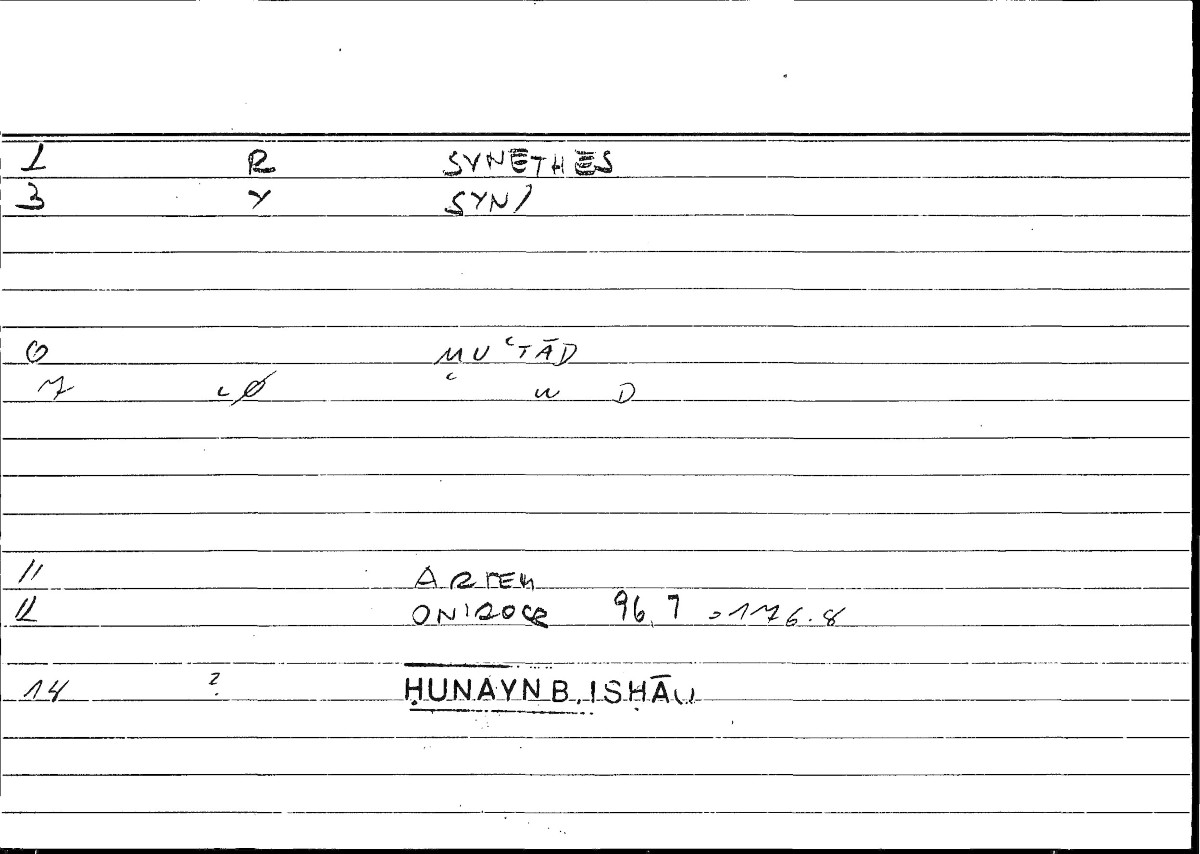 1 R SYNETHES
3 Y SYN/
6 MUʿTĀD
7 ʿ W D
11 ARTEM
12 ONIROCR 96,7 = 176.8
14 ? ḤUNAYN B. ISḤĀQ